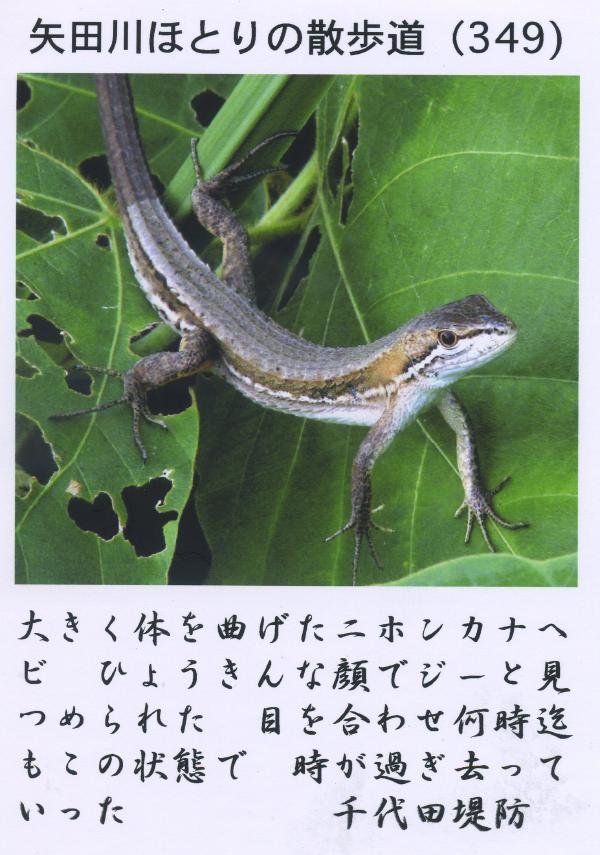 矢田川ほとりの散歩道（349）
大きく体を曲げたニホンカナヘ
ビ　ひょうきんな顔でジーと見
つめられた　目を合わせ何時迄
もこの状態で　時が過ぎ去って
いった　　　　　千代田堤防